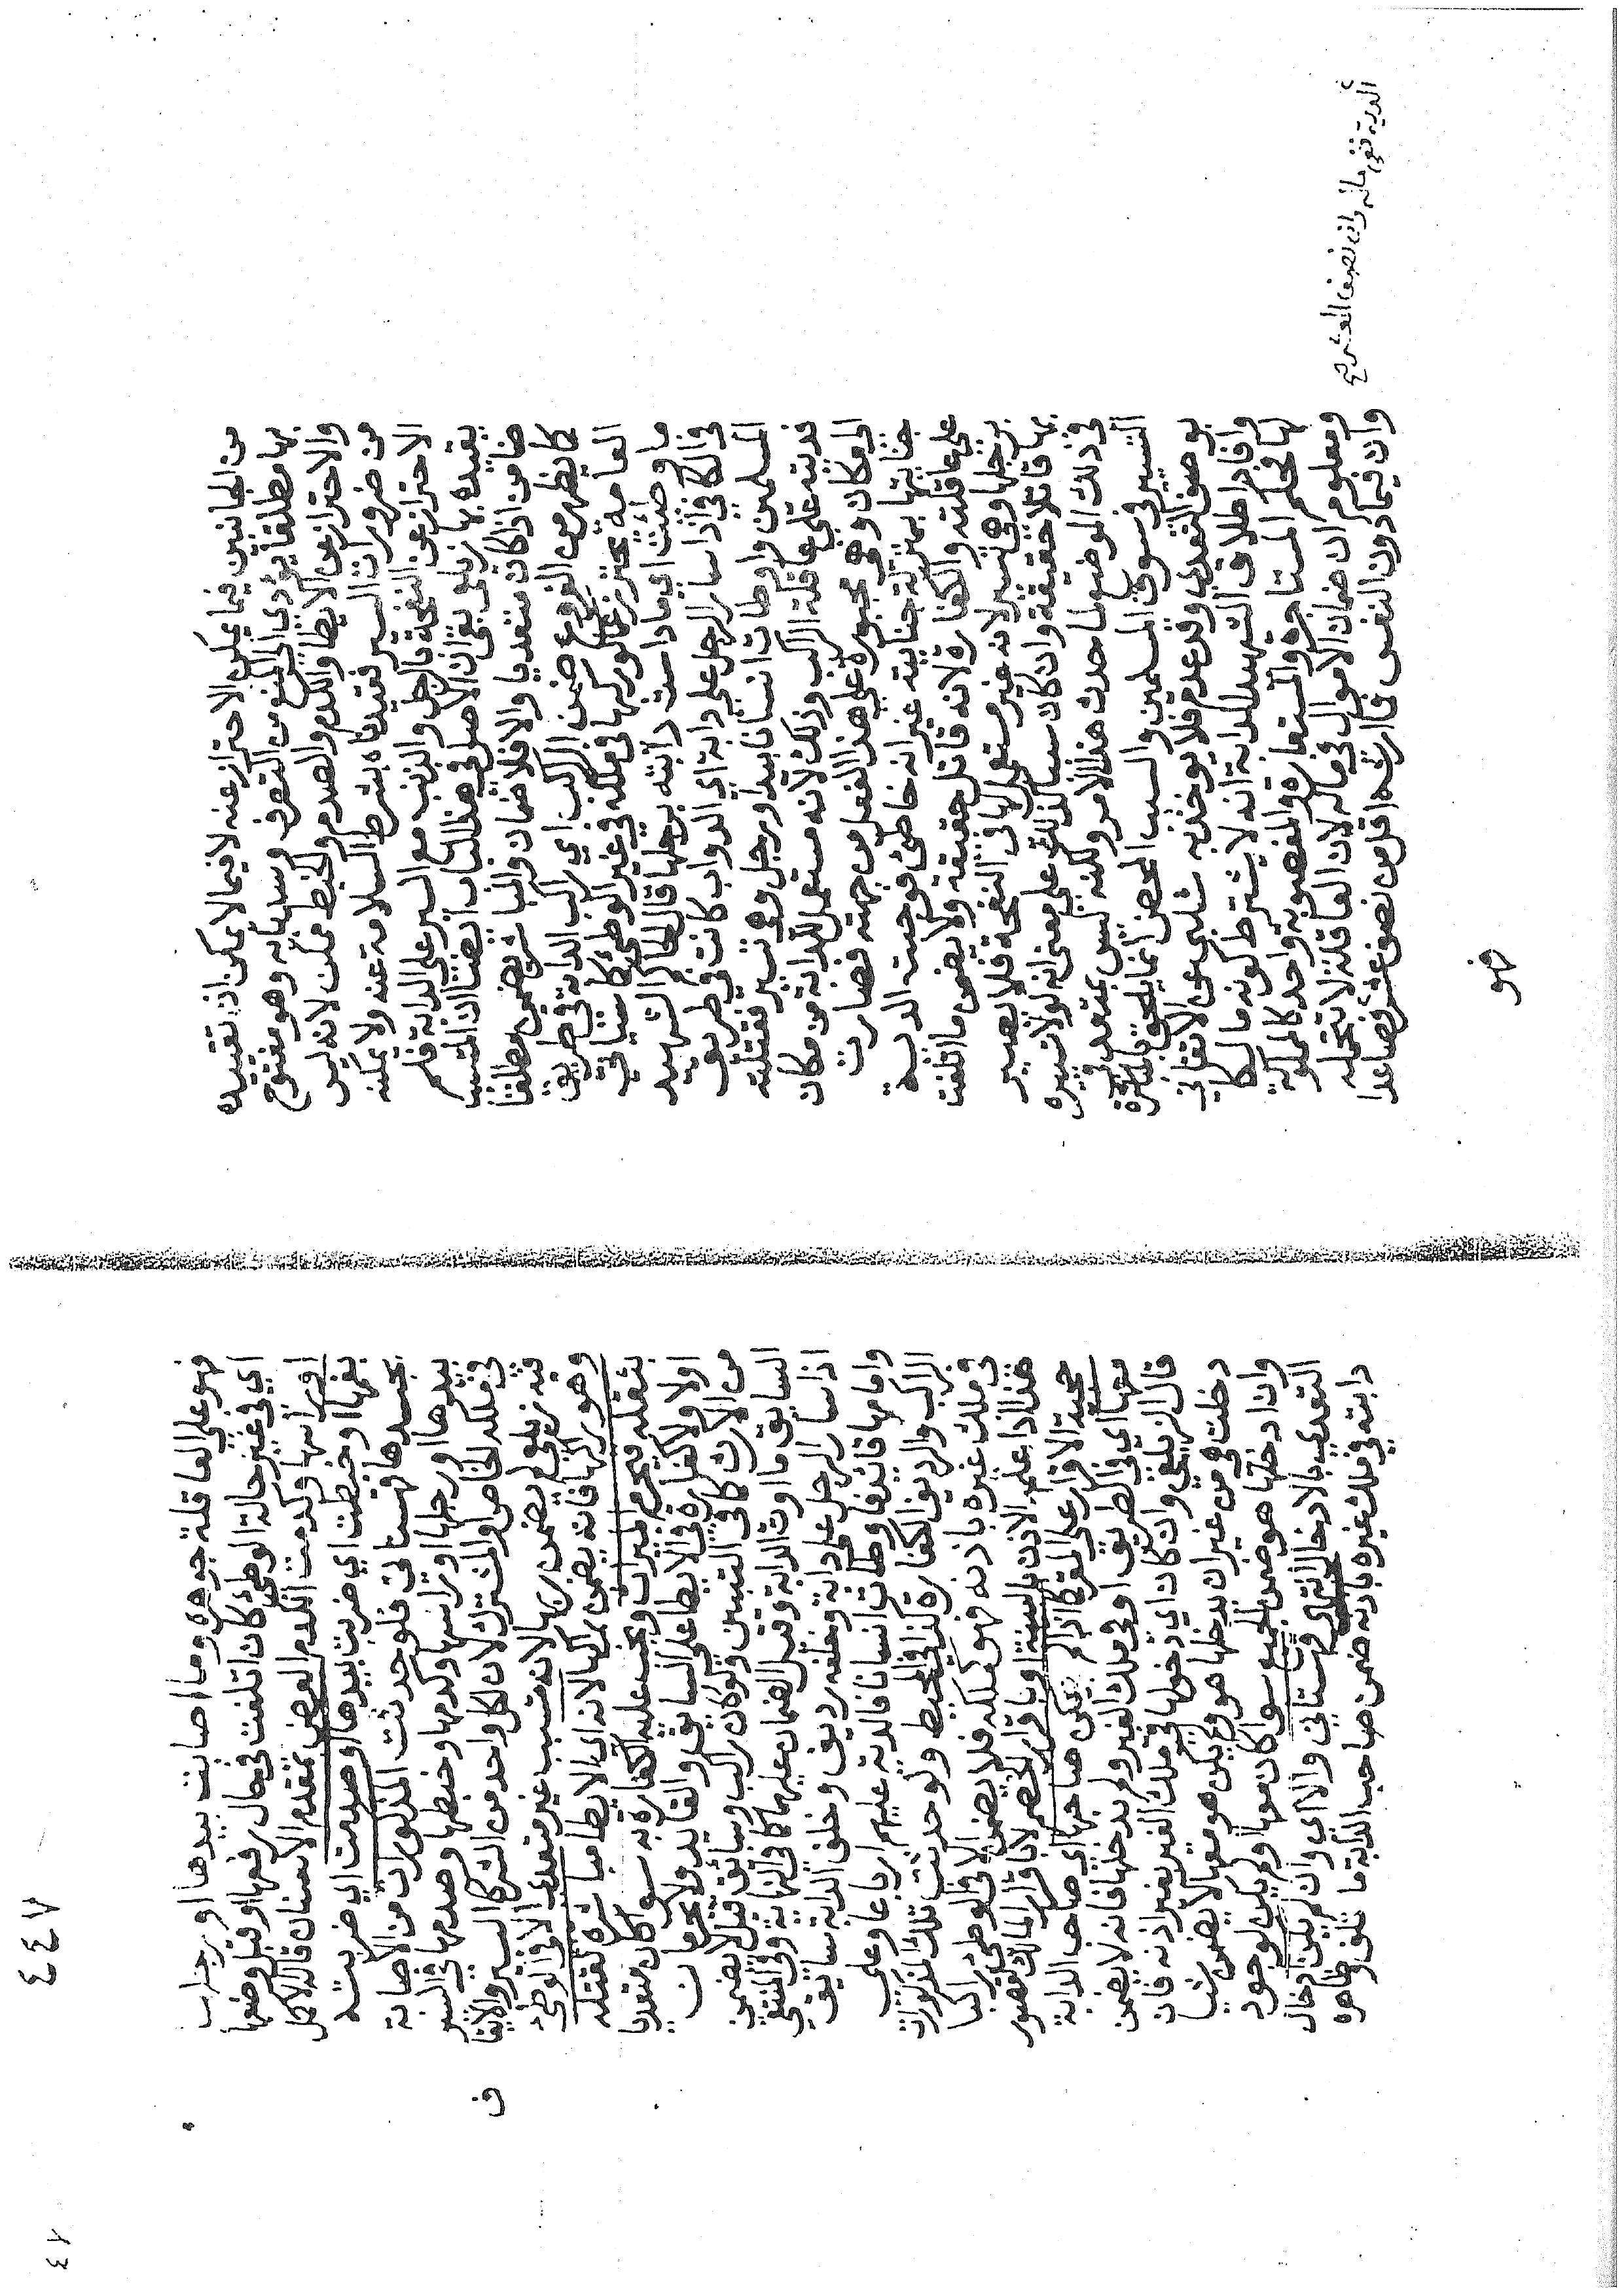 من الجانبين فيما يمكن الاحتراز عنه لا فيما لا يمكن اذ تقييده
بها مطلقا يؤدي الى المنع من التصرف وسد بابه وهو مفتوح
والاحتراز عن الايطا والكدم والصدم والخبط ممكن لانه ليس
من ضرورات السير فقيدناه بشرط السلامة عنه ولا يمكنه
الاحتراز عن النفحة بالرجل والذنب مع السير على الدابة فلم
يقيده بها زيلعي بقي ان الاصل في هذا الباب ايضا ان المتسبب
ضامن اذا كان متعديا والا فلا ضمان والمباشر يضمن مطلقا
كما يظهر من الفروع ضمن الراكب اي راكب الدابة في طريق
العامة يحترز عما لو ركبها في ملكه في غير الوطئ كما سياتي
ما وطئت اي ما داست دابته برجلها قال الحاكم الشهيد
في الكافي اذا سار الرجل على دابة اي الدواب كانت في طريق
المسلمين واوطات انسانا بيد او برجل وهي تسير فقتلته
فديته على عاقلة الراكب وذلك لانه مستعمل للدابة من مكان
الى مكان وهي مجبورة على هذا الفعل من جهته فصارت
جنايتها بمنزلة جنايته غير انه خاطئ فوجبت الدية
على عاقلته والكفارة لانه قاتل حقيقة ولا يضمن ما اتلفت
برجلها وهي تسير لانه غير مستعمل لها في النفحة فلا يصير
بها قاتلا حقيقة وان كان سببا لذلك على معنى انه لولا تسييره
في ذلك الموضع لما حدث هذا الامر ولكنه ليس بمتعد في
التسيير في سوق المسلمين والسبب المحض انما يلحق بالمباشرة
بوصف التعدي وقد عدم فلا يوخذ به شلبي عن الاتقاني
وافاد اطلاق الشهيد للدابة انه لا يشترط كونه مالكا
لها فحكم المستاجرة والمستعارة والمغصوبة واحد كالمملوكة
ومعلوم ان ضمان الاموال في ماله لان العاقلة لا تتحمله
وان فيما دون النفس فارشه اقل من نصف عشر فصاعدا
الدية ففي ماله وان نصف العشر
فهو
٤٤٧
٤٧
فهو على العاقلة جوهره وما اصابت بيدها او برجلها
اي في غير حالة الوطئ كان اتلفت في حال رفعها او قبل وضعها
او براسها وكدمت الكدم العض بمقدم الاسنان قاله الاكمل
بفمها او خبطت اي ضربت بيدها او صدمت اي ضربت
بجسدها قهستاني فلو حدثت المذكورات من الاصابة
بيدها او رجلها او براسها وكدمها وخبطها وصدمها في السير
في ملكه الخاص او المشترك لان لكل واحد من الشركا السير والايقاف
فيه زيلعي لم يضمن ربها لانه متسبب غير متعد الا في الوطئ
وهو راكبها فانه يضمن راكبها لانه اي الايطا مباشرة لقتله
بثقله فيحرم الميراث ويجب عليه الكفارة به سوا كان متعديا
اولا ولا كفارة في الايطا على السايق والقايد ولا يحرمان
من الارث كما في التبيين ولو كان راكب وسائق قيل لا يضمن
السايق ما اوطات الدابة وقيل الضمان عليهما كما في النهاية وفي المنتقى
اذا سار الرجل على دابة وخلفه رديف وخلف الدابة سايق
وامامها قائد فاوطات انسانا فالدية عليهم ارباعا وعلى
الراكب والرديف الكفارة كذا في المحيط ولو حدثت تلك المذكورات
في ملك غيره باذنه فهو كملكه فلا يضمن الا في الوطئ راكبا
هذا اذا علم الاذن بالبينة او باقرار الخصم لا باقرار المالك لقصور
حجية الاقرار على المقر كما اذا لم يكن صاحبها اي صاحب الدابة
معها اي في الطريق او في ملك الغير ولم يدخلها فانه لا يضمن
قال الزيلعي وان كان اي دخولها في ملك الغير بغير اذنه فان
دخلت هي من غير ان يدخلها هو ولم يكن هو معها لا يضمن شيا
وان ادخلها هو ضمن الجميع سوا كان معها او لم يكن لوجود
التعدي بالادخال انتهى قهستاني والا اي وان لم يكن ادخال
دابته في ملك غيره باذنه ضمن صاحب الدابة ما تلف وظاهره
ف